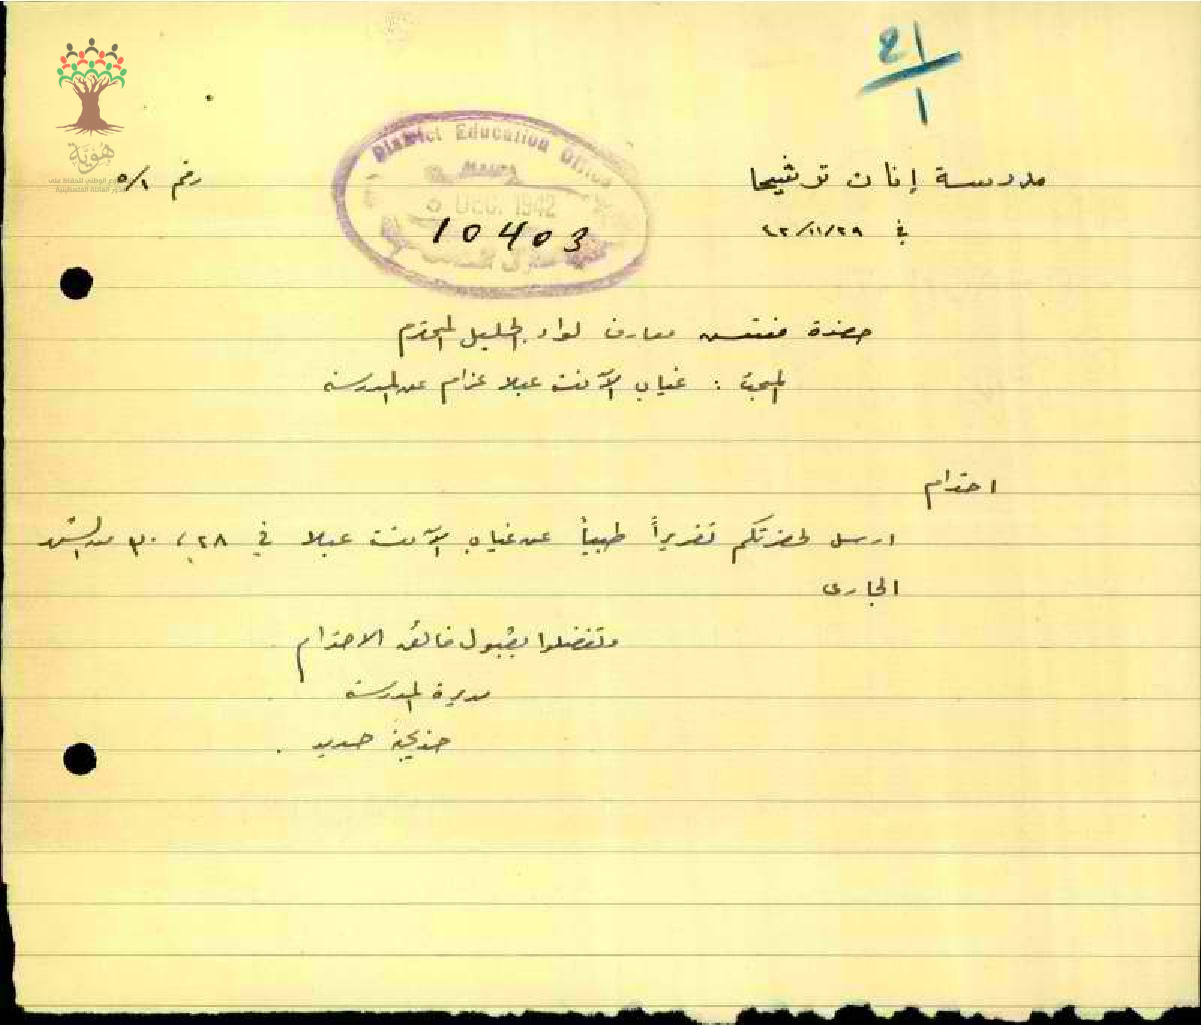 21
1
هوية
District Education Office
DEC. 1942
10403
مدرسة إناث ترشيحا
رقم ٥/١
في ٤٢/١١/٢٩
حضرة مفتش معارف لواء الجليل المحترم
المبحث : غياب الآنسة عبلا عزام عن المدرسة
احترام
ارسل لحضرتكم تقريراً طبياً عن غياب الآنسة عبلا في ٢٨ ، ٣٠ من الشهر
الجاري
وتفضلوا بقبول فائق الاحترام
مديرة المدرسة
خديجة حديد